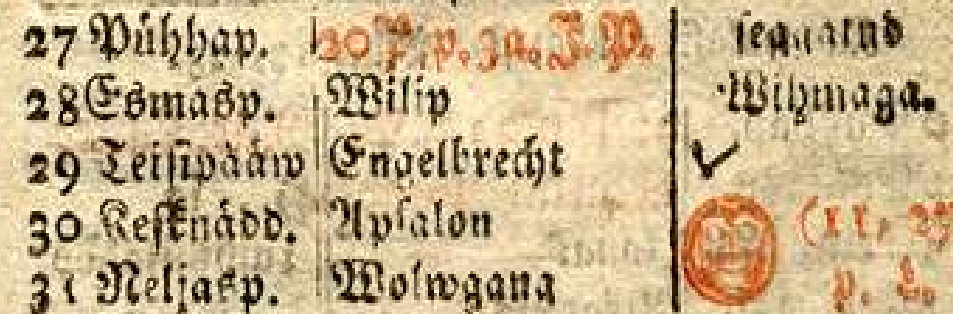 27 Pühhap. 20 P. p. 3a. J. P. seggatud
28 Esmasp. Wilip Wihmaga.
29 Teisipääw Engelbrecht
30 Kesknädd. Apsalon (11, 27
31 Neljasp. Wolwgang p. L.